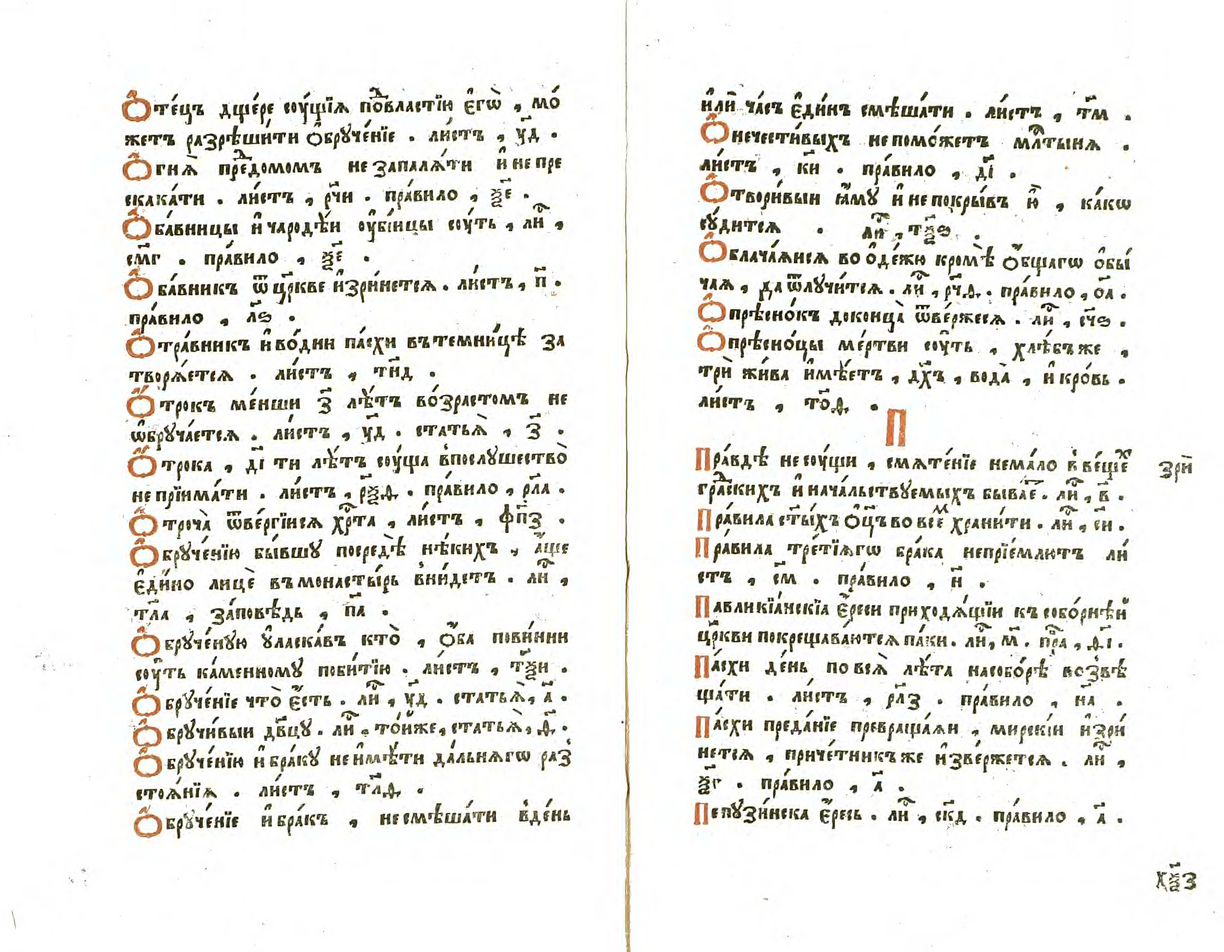 Ѻ҆те́цъ дще́ре сꙋ́щїѧ по́властїю є҆гѡ̀ , мо́
жетъ разрѣши́ти ѻ҆брꙋче́нїе . ли́стъ , у҃д .
Ѻ҆гнѧ̀ пре́домомъ не запалѧ́ти и҆ не пре
скака́ти . ли́стъ , рч҃и . пра́вило , ѯ҃е .
Ѻ҆ба́вницы и҆ чародѣ́и ᲂу҆бі́йцы сꙋ́ть , ли̑ ,
см҃г . пра́вило , ѯ҃е .
Ѻ҆ба́вникъ ѿ цр҃кве и҆зри́нетсѧ . ли́стъ , п҃ .
пра́вило , л҃ѕ .
Ѻ҆тра́вникъ и҆ во́дни па́схи въ темни́цѣ за
творѧ́етсѧ . ли́стъ , тн҃д .
Ѻ҆́трокъ ме́нши з҃ лѣ́тъ во́зрастомъ не
ѡ҆брꙋча́етсѧ . ли́стъ , у҃д . статьѧ̀ , з҃ .
Ѻ҆́трока , д҃і ти лѣ́тъ сꙋ́ща впослꙋшество̀
не прїима́ти . ли́стъ , рѯ҃д . пра́вило , рл҃а .
Ѻ҆троча̀ ѿве́ргїисѧ хр҃та , ли́стъ , фп҃з .
Ѻ҆брꙋче́нїю бы́вшꙋ посредѣ̀ нѣ́кихъ , а҆́ще
є҆ди́но лицѐ въ монасты́рь вни́детъ . ли̑ ,
тл҃а , за́повѣдь , п҃а .
Ѻ҆брꙋче́нꙋю ᲂу҆ласка́въ кто̀ , ѻ҆́ба пови́нни
сꙋ́ть ка́менномꙋ поби́тїю . ли́стъ , тѯ҃и .
Ѻ҆брꙋче́нїе что̀ є҆́сть . ли̑ , у҃д . статьѧ̀ , а҃ .
Ѻ҆брꙋчи́выи дв҃цꙋ . ли̑ , то́йже , статьѧ̀ , д҃ .
Ѻ҆брꙋче́нїю и҆ бра́кꙋ не и҆мѣ́ти да́льнѧгѡ раз
стоѧ́нїѧ . ли́стъ , тл҃д .
Ѻ҆брꙋче́нїе и҆ бра́къ , не смѣша́ти вде́нь
и҆лѝ ча́съ є҆ди́нъ смѣша́ти . ли́стъ , тм҃ .
Ѻ҆ нечести́выхъ не помо́жетъ мл҃тынѧ .
ли́стъ , к҃и . пра́вило , д҃і .
Ѻ҆твори́выи ꙗ҆́мꙋ и҆ не покры́въ ю҆̀ , ка́кѡ
сꙋ́дитсѧ . ли̑ , тѯ҃ѕ .
Ѻ҆блача́ѧисѧ во ѻ҆де́жю кромѣ̀ ѻ҆́бщагѡ ѻ҆бы́
чаѧ , да ѿлꙋчи́тсѧ . ли̑ , рч҃д . пра́вило , о҃а .
Ѻ҆прѣсно́къ доконца̀ ѿве́ржесѧ . ли̑ , сч҃ѕ .
Ѻ҆прѣсно́цы ме́ртви сꙋ́ть , хлѣ́бъ же ,
трѝ жива и҆мѣ́етъ , дх҃ъ , вода̀ , и҆ кро́вь .
ли́стъ , то҃д .
П
Пра́вдѣ не сꙋ́щи , смѧте́нїе нема́ло в ве́щехъ
гра́скихъ и҆ нача́льствꙋемыхъ быва́е . ли̑ , в҃ .
Пра́вила ст҃ы́хъ ѻ҆ц҃ъ во все́м храни́ти . ли̑ , с҃н .
Пра́вила тре́тїѧгѡ бра́ка непрїе́млютъ ли́
стъ , см҃ . пра́вило , н҃ .
Павликїа́нскїа є҆́реси приходѧ́щїи къ собо́рнѣй
цр҃кви покреща́ваютсѧ па́ки . ли̑ , м҃ . пра̑ , д҃і .
Па́схи де́нь по всѧ̀ лѣ́та на собо́рѣ возвѣ
ща́ти . ли́стъ , рл҃з . пра́вило , н҃а .
Па́схи преда́нїе превраща́ѧи , мирскі́и и҆зри́
нетсѧ , приче́тникъ же и҆зве́ржетсѧ . ли̑ ,
ѯ҃г . пра́вило , а҃ .
Пепꙋзи́нска є҆́ресь . ли̑ , ск҃д . пра́вило , а҃ .
зрѝ
хѯ҃з